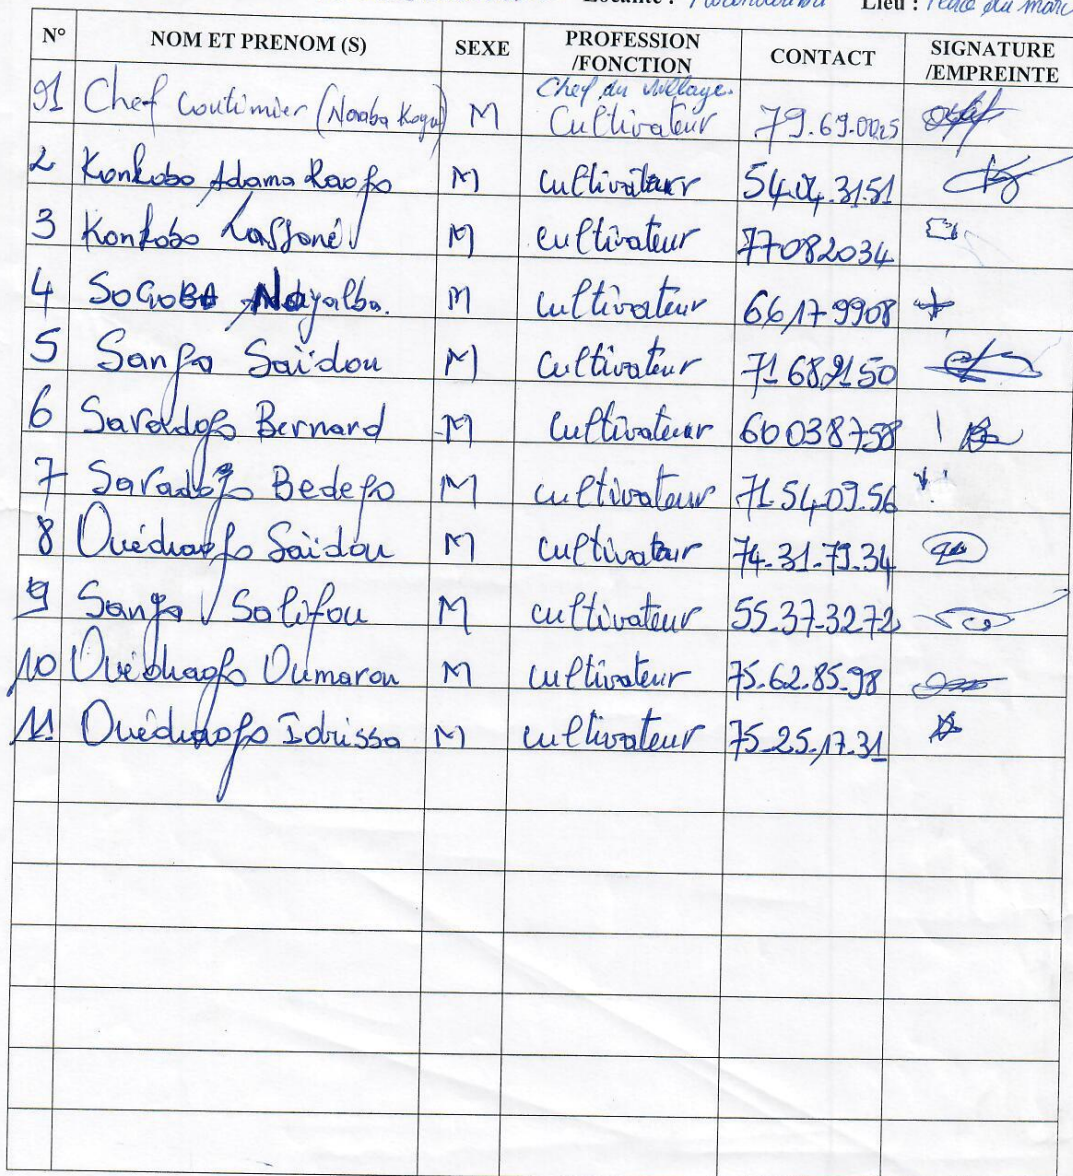 Lieu :
N° NOM ET PRENOM (S) SEXE PROFESSION /FONCTION CONTACT SIGNATURE /EMPREINTE
01 Chef Coutimier (Naaba Koga) M Chef du village. Cultivateur 79.69.00.25
2 Konkobo Adama Raogo M cultivateur 54.04.31.51
3 Konkobo Lassané M cultivateur 77082034
4 M cultivateur 66179908
5 Sanga Saïdou M Cultivateur 71689150
6 Savadogo Bernard M Cultivateur 60038758
7 Savadogo Bedego M cultivateur 71.54.09.56
8 Ouédraogo Saïdou M cultivateur 74.31.79.34
9 Sanga Salifou M cultivateur 55.37.3272
10 Ouédraogo Oumarou M cultivateur 75.62.85.98
11 Ouédraogo Idrissa M cultivateur 75.25.17.31